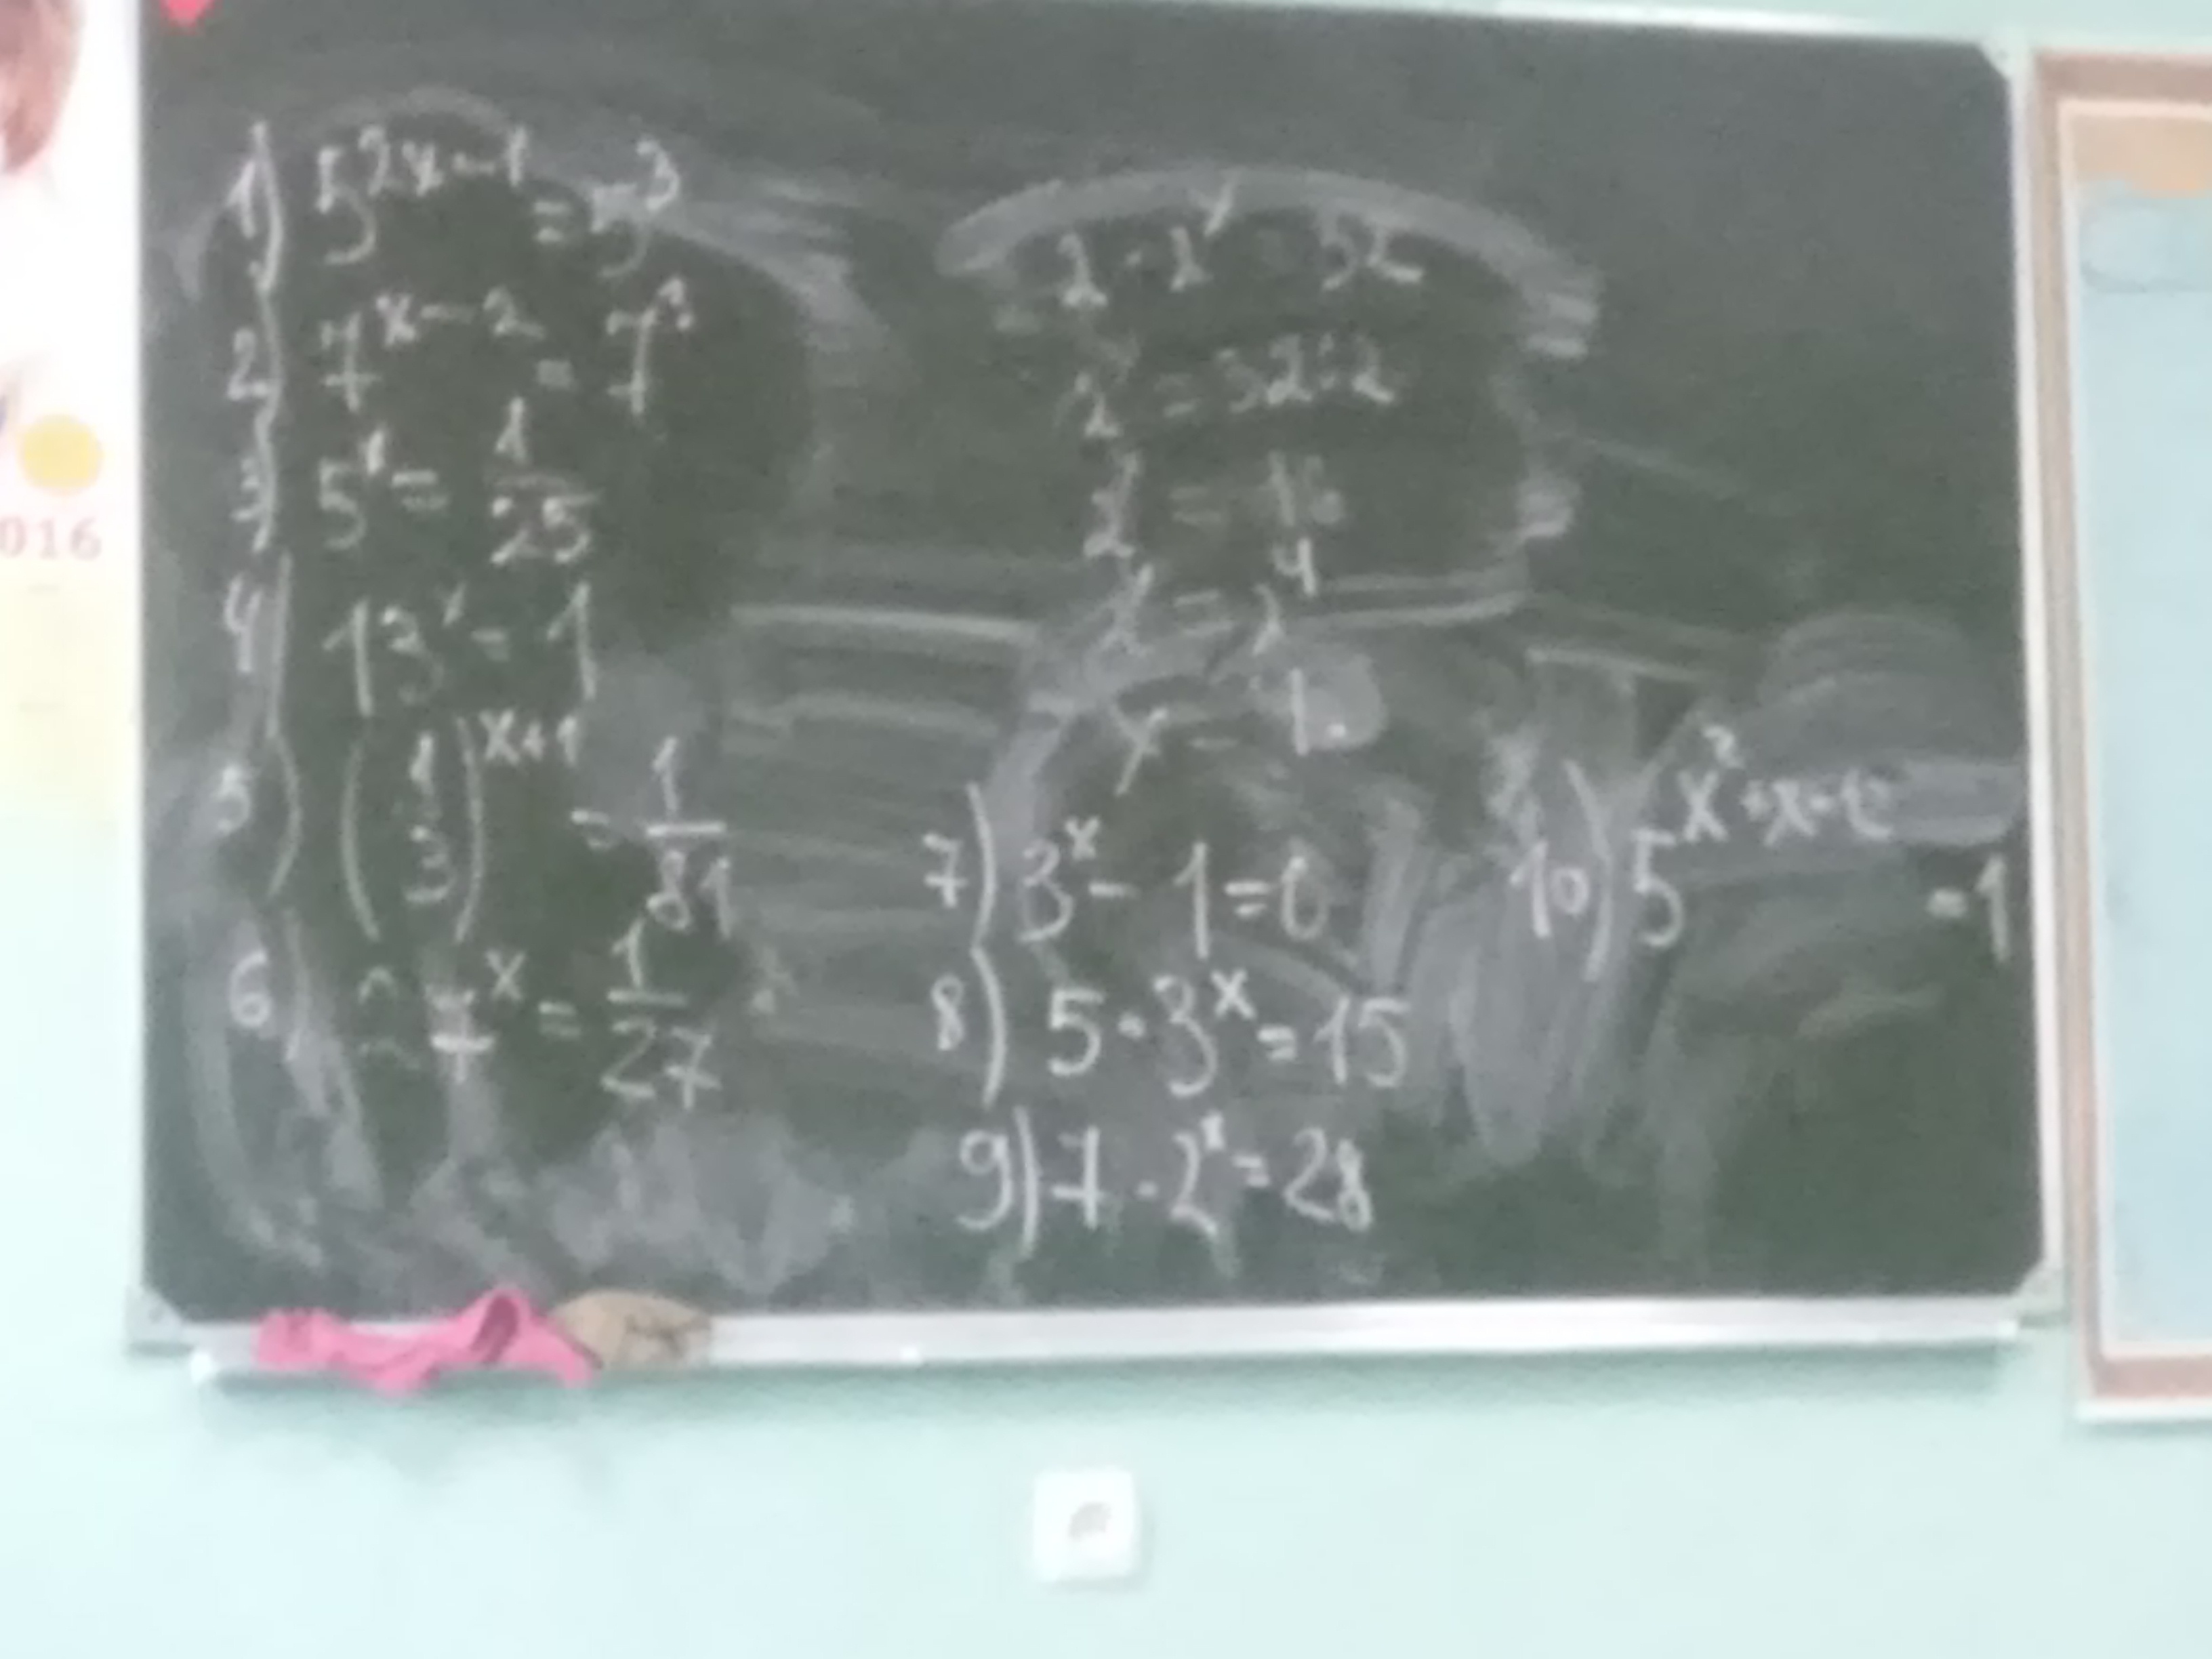 1) 5^{2x-1} = 5^3
2) 7^{x-2} = 7^3
3) 5^x = 1/25
4) 13^x = 1
5) (1/3)^{x+1} = 1/81
6) x = 1/27
2 · 2^x = 32
2^x = 32:2
2^x = 16
2^x = 2^4
x = 4.
7) 3^x - 1 = 0
8) 5 · 3^x = 15
9) 7 · 2^x = 28
10) 5^{x^2+x-12} = 1
016